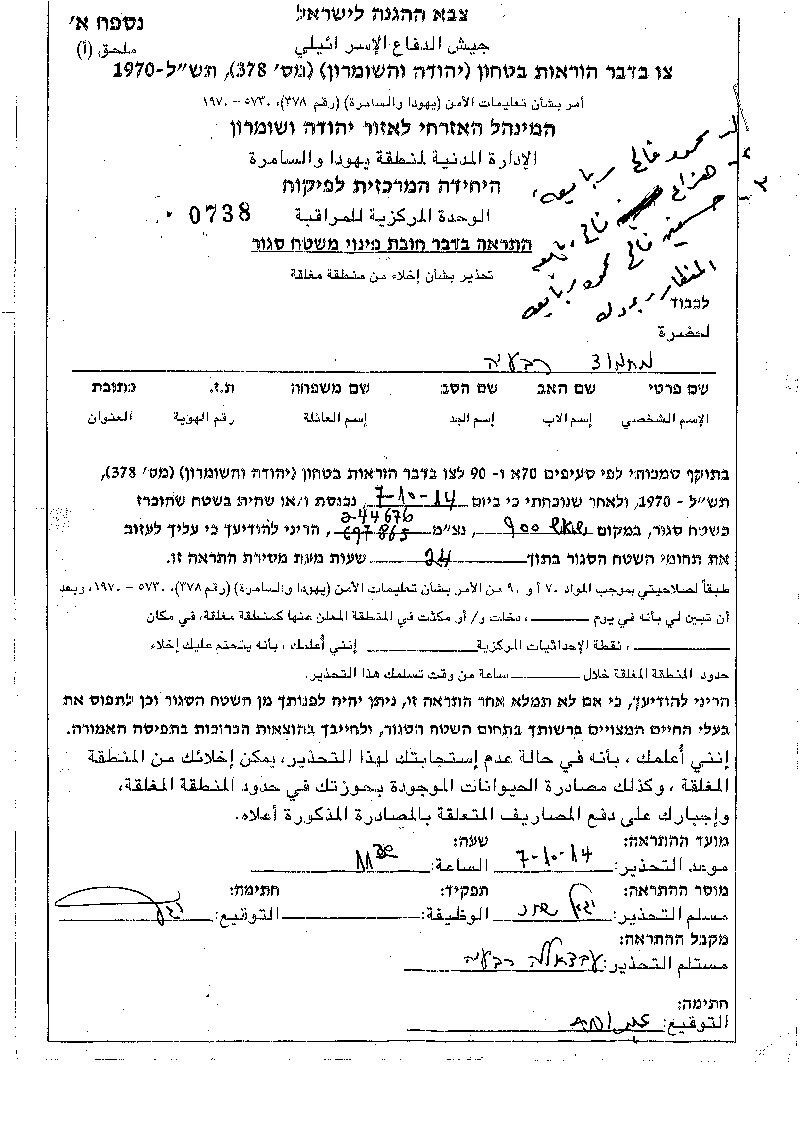 צבא ההגנה לישראל
נספח א'
جيش الدفاع الإسرائيلي
ملحق (أ)
צו בדבר הוראות בטחון (יהודה והשומרון) (מס' 378), תש"ל-1970
أمر بشأن تعليمات الأمن (يهودا والسامرة) (رقم ٣٧٨)، ٥٧٣٠ – ١٩٧٠
המינהל האזרחי לאזור יהודה ושומרון
الإدارة المدنية لمنطقة يهودا والسامرة
היחידה המרכזית לפיקוח
الوحدة المركزية للمراقبة
0738
התראה בדבר חובת פינוי משטח סגור
تحذير بشأن إخلاء من منطقة مغلقة
محمود فالح ربايعه
فالح
حسين فالح محمود ربايعه
לכבוד
لحضرة
מחמוד רבעיה
שם פרטי שם האב שם הסב שם משפחה ת.ז. כתובת
الإسم الشخصي إسم الاب إسم الجد إسم العائلة رقم الهوية العنوان
בתוקף סמכותי לפי סעיפים 70א ו- 90 לצו בדבר הוראות בטחון (יהודה והשומרון) (מס' 378),
תש"ל - 1970, ולאחר שנוכחתי כי ביום 7-10-14 נכנסת ו/או שהית בשטח שהוכרז
244676
כשטח סגור, במקום 900, נצ"מ 697865, הריני להודיעך כי עליך לעזוב
את תחומי השטח הסגור בתוך 24 שעות מעת מסירת התראה זו.
طبقاً لصلاحيتي بموجب المواد ٧٠ أ و ٩٠ من الأمر بشأن تعليمات الأمن (يهودا والسامرة) (رقم ٣٧٨)، ٥٧٣٠ – ١٩٧٠، وبعد
أن تبين لي بأنه في يوم ، دخلت و/ أو مكثت في المنطقة المعلن عنها كمنطقة مغلقة، في مكان
، نقطة الإحداثيات المركزية إنني أعلمك ، بأنه يتحتم عليك إخلاء
حدود المنطقة المغلقة خلال ساعة من وقت تسلمك هذا التحذير.
הריני להודיעך, כי אם לא תמלא אחר התראה זו, ניתן יהיה לפנותך מן השטח הסגור וכן לתפוס את
בעלי החיים המצויים ברשותך בתחום השטח הסגור, ולחייבך בהוצאות הכרוכות בתפיסה האמורה.
إنني أعلمك ، بأنه في حالة عدم إستجابتك لهذا التحذير، يمكن إخلائك من المنطقة
المغلقة ، وكذلك مصادرة الحيوانات الموجودة بحوزتك في حدود المنطقة المغلقة،
وإجبارك على دفع المصاريف المتعلقة بالمصادرة المذكورة أعلاه.
מועד ההתראה: שעה:
موعد التحذير: 7-10-14 الساعة: 11 30
מוסר ההתראה: תפקיד: חתימה:
مسلم التحذير: الوظيفة: التوقيع:
מקבל ההתראה:
مستلم التحذير: עבדאללה רבעיה
חתימה:
التوقيع: